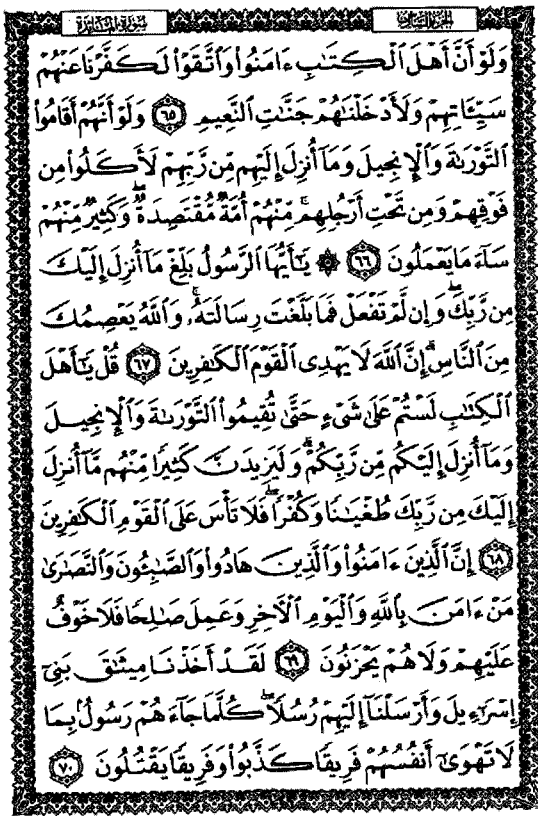 سورة المائدة
الجزء السادس
وَلَوْ أَنَّ أَهْلَ ٱلْكِتَٰبِ ءَامَنُوا۟ وَٱتَّقَوْا۟ لَكَفَّرْنَا عَنْهُمْ
سَيِّـَٔاتِهِمْ وَلَأَدْخَلْنَٰهُمْ جَنَّٰتِ ٱلنَّعِيمِ ٦٥ وَلَوْ أَنَّهُمْ أَقَامُوا۟
ٱلتَّوْرَىٰةَ وَٱلْإِنجِيلَ وَمَآ أُنزِلَ إِلَيْهِم مِّن رَّبِّهِمْ لَأَكَلُوا۟ مِن
فَوْقِهِمْ وَمِن تَحْتِ أَرْجُلِهِم ۚ مِّنْهُمْ أُمَّةٌ مُّقْتَصِدَةٌ ۖ وَكَثِيرٌ مِّنْهُمْ
سَآءَ مَا يَعْمَلُونَ ٦٦ ۞ يَٰٓأَيُّهَا ٱلرَّسُولُ بَلِّغْ مَآ أُنزِلَ إِلَيْكَ
مِن رَّبِّكَ ۖ وَإِن لَّمْ تَفْعَلْ فَمَا بَلَّغْتَ رِسَالَتَهُۥ ۚ وَٱللَّهُ يَعْصِمُكَ
مِنَ ٱلنَّاسِ ۗ إِنَّ ٱللَّهَ لَا يَهْدِى ٱلْقَوْمَ ٱلْكَٰفِرِينَ ٦٧ قُلْ يَٰٓأَهْلَ
ٱلْكِتَٰبِ لَسْتُمْ عَلَىٰ شَىْءٍ حَتَّىٰ تُقِيمُوا۟ ٱلتَّوْرَىٰةَ وَٱلْإِنجِيلَ
وَمَآ أُنزِلَ إِلَيْكُم مِّن رَّبِّكُمْ ۗ وَلَيَزِيدَنَّ كَثِيرًا مِّنْهُم مَّآ أُنزِلَ
إِلَيْكَ مِن رَّبِّكَ طُغْيَٰنًا وَكُفْرًا ۖ فَلَا تَأْسَ عَلَى ٱلْقَوْمِ ٱلْكَٰفِرِينَ
٦٨ إِنَّ ٱلَّذِينَ ءَامَنُوا۟ وَٱلَّذِينَ هَادُوا۟ وَٱلصَّٰبِـُٔونَ وَٱلنَّصَٰرَىٰ
مَنْ ءَامَنَ بِٱللَّهِ وَٱلْيَوْمِ ٱلْءَاخِرِ وَعَمِلَ صَٰلِحًا فَلَا خَوْفٌ
عَلَيْهِمْ وَلَا هُمْ يَحْزَنُونَ ٦٩ لَقَدْ أَخَذْنَا مِيثَٰقَ بَنِىٓ
إِسْرَٰٓءِيلَ وَأَرْسَلْنَآ إِلَيْهِمْ رُسُلًا ۖ كُلَّمَا جَآءَهُمْ رَسُولٌۢ بِمَا
لَا تَهْوَىٰٓ أَنفُسُهُمْ فَرِيقًا كَذَّبُوا۟ وَفَرِيقًا يَقْتُلُونَ ٧٠